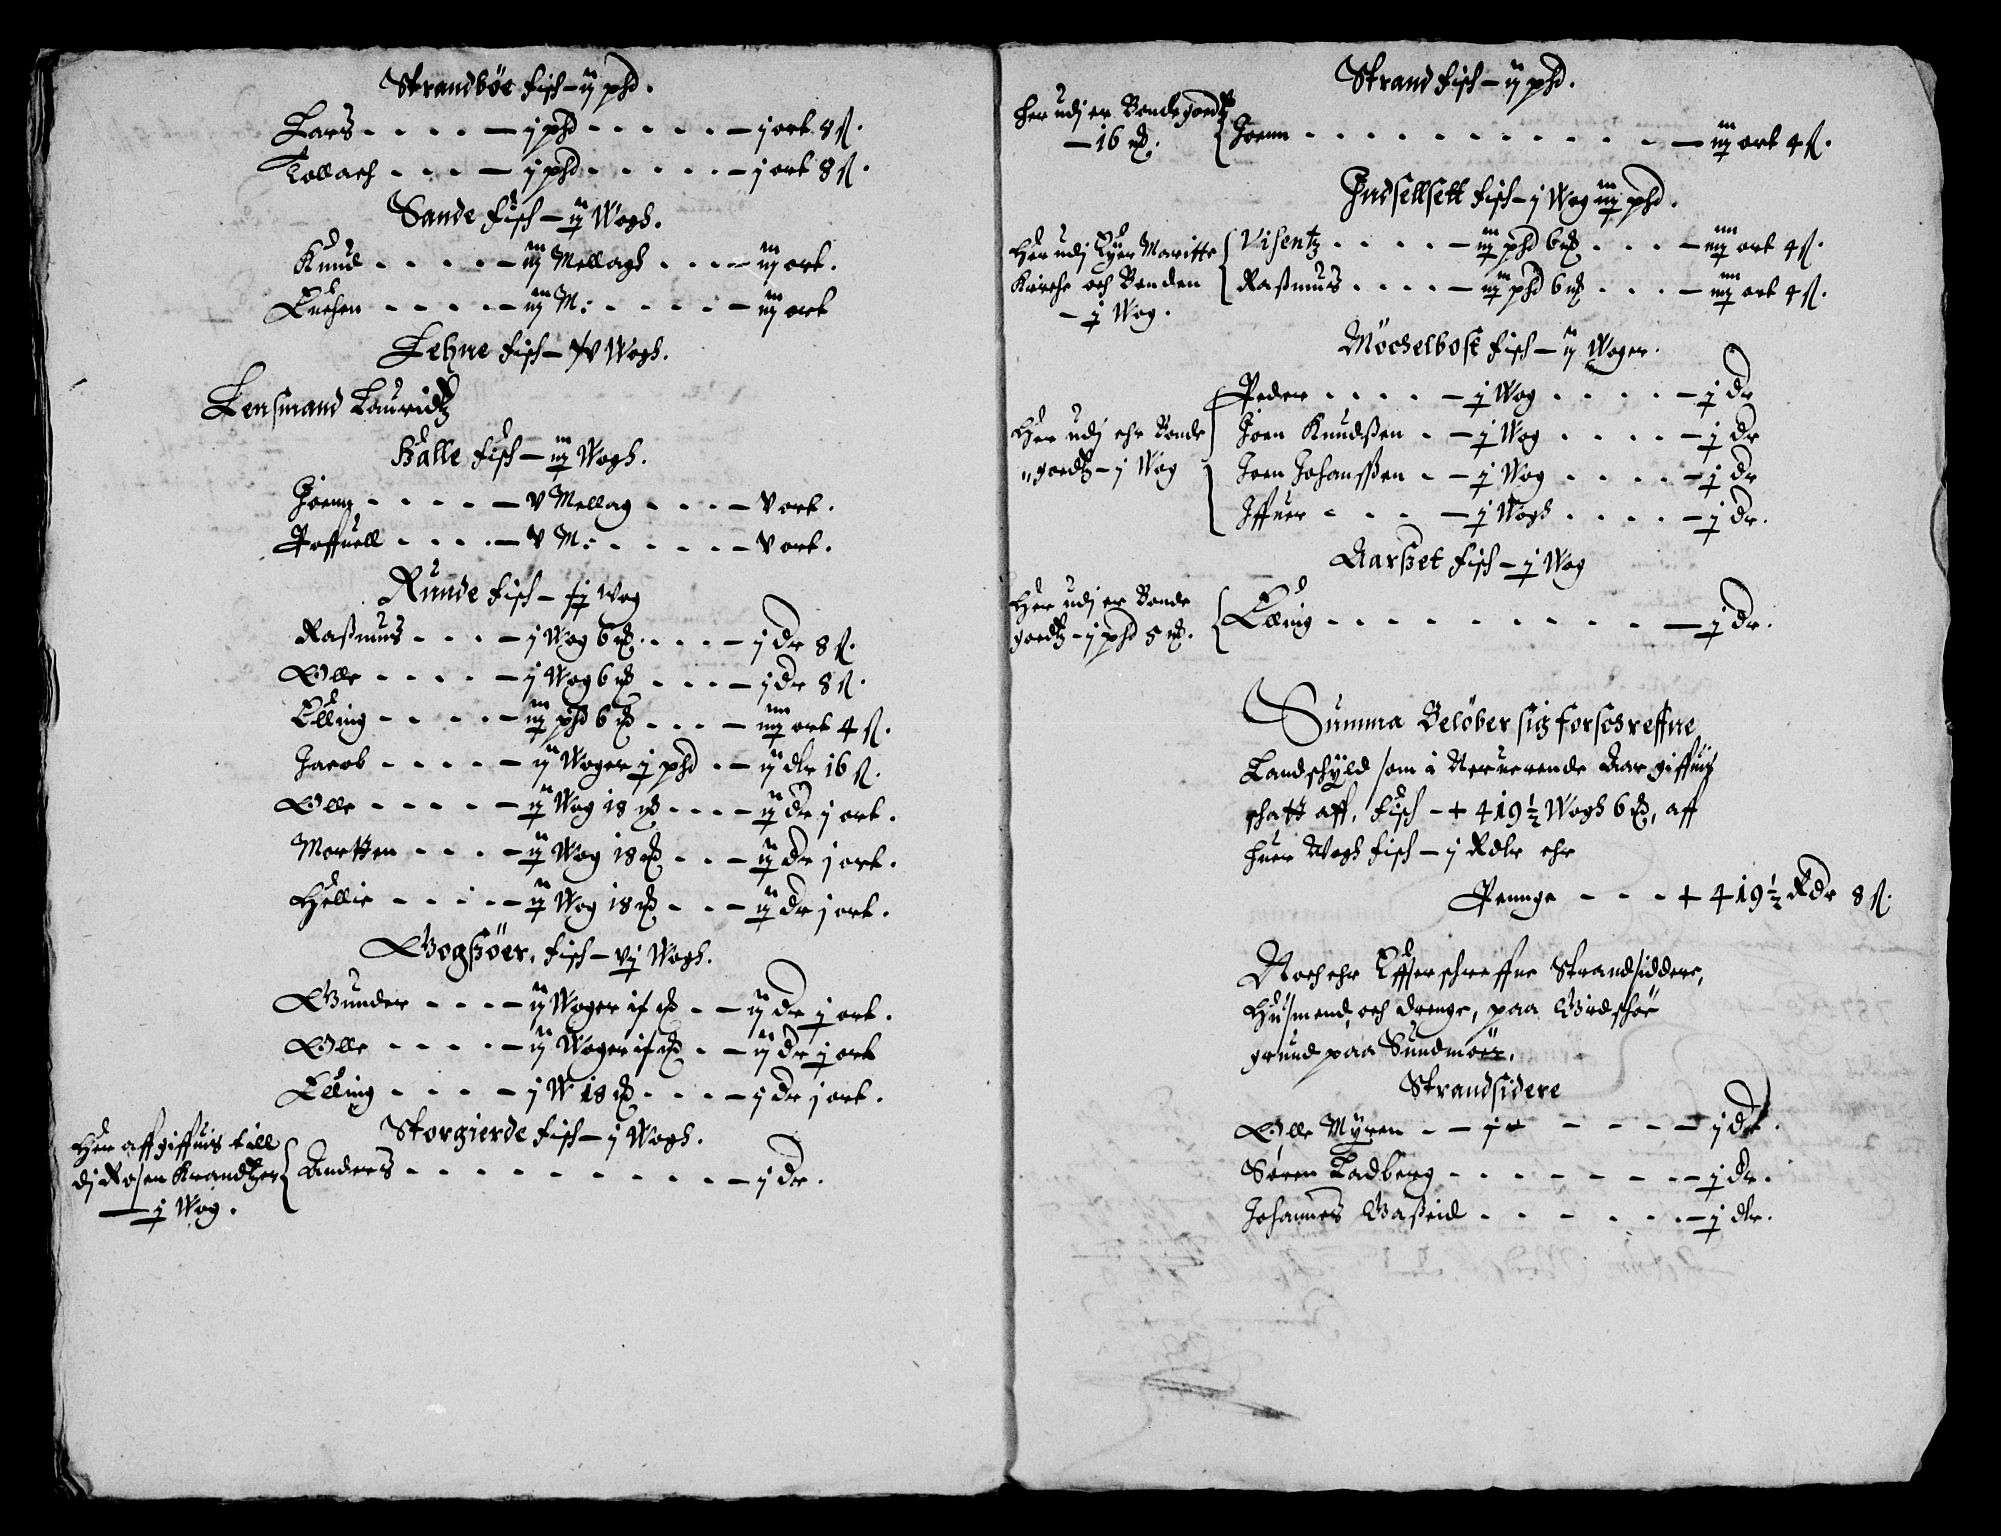 Strandbøe fisch – ij phd.
Lars - - - - – j phd - - - - - – j ort 8 ß.
Tollach - - - – j phd - - - - - – j ort 8 ß.
Sande fisch – ij Wogh.
Knud - - - - - – iij Mellagh - - - – iij ort.
Enchen - - - - – iij M: - - - - - – iij ort
Lehne fisch – Wogh.
Lensmand Lauridtz
Kalle fisch – iij Wogh.
Joenn - - - - - – v Mellag - - - – v ort.
Poffuell - - - - – v M: - - - - - – v ort.
Runde fisch – Wog
Raßmus - - - – j Wog 6 - - - – j dr 8 ß.
Olle - - - - – j Wog 6 - - - – j dr 8 ß.
Elling - - - - - – iij phd 6 - - - – iiij ort 4 ß.
Jacob - - - - - – ij Woger j phd - - – ij dlr 16 ß.
Olle - - - - - – ij Wog 18 - - - - – ij dr j ort.
Mortten - - - - – ij Wog 18 - - - – ij dr j ort.
Hellie - - - - – ij Wog 18 - - - – ij dr j ort.
Gogßøer, fisch – vj Wogh.
Gunder - - - - – ij Woger - - – ij dr j ort.
Olle - - - - - – ij Woger - - – ij dr j ort
Elling - - - - – j W 18 - - - – j dr j ort.
Storgierde fisch – j Wogh.
Her aff giffuis till
dj Rosen Krandtzer
– j Wog.
Anders - - - - - - - - - – j dr.
Strand fisch – ij phd.
Her udj er Bonde goedtz
– 16
Joenn - - - - - - - - - - - – iij ort 4 ß.
Indsellsett fisch – j Wog iij phd.
Her udj Eyer Maritte
Kirche och Bonden
– j Wog.
Visentz - - - - – iij phd 6 - - - – iiij ort 4 ß.
Raßmus - - - - – iij phd 6 - - - – iiij ort 4 ß.
Möchelbost fisch – ij Woger.
Her udj ehr Bonde
goedtz – j Wog
Peder - - - - – j Wog - - - - – j dr
Joen Knudßen - – j Wog - - - - – j dr
Joen Johansßen - – j Wog - - - - – j dr
Jffuer - - - – j Wogh - - - - – j dr.
Aarßet fisch – j Wog
Her udj er Bonde
goedtz – j phd 5
Elling - - - - - - - - - - – j dr.
Summa Belöber sig forschreffne
Landschyld som i Neruerende Aar giffuis
schatt aff. fisch – + 419½ Wogh 6, aff
huer Wogh fisch – j Rdlr ehr
Pennge - - - + 419½ Rdr 8 ß.
Noch ehr Effter schreffne Strandsiddere,
Husmend, och drenge, paa Gidschøe
grund paa Sundmöer.
Strandsidere
Olle Myren - - - - - - - – j dr.
Søren Ladberg - - - - - - - – j dr.
Johannes Gaßeid - - - - - - – j dlr.